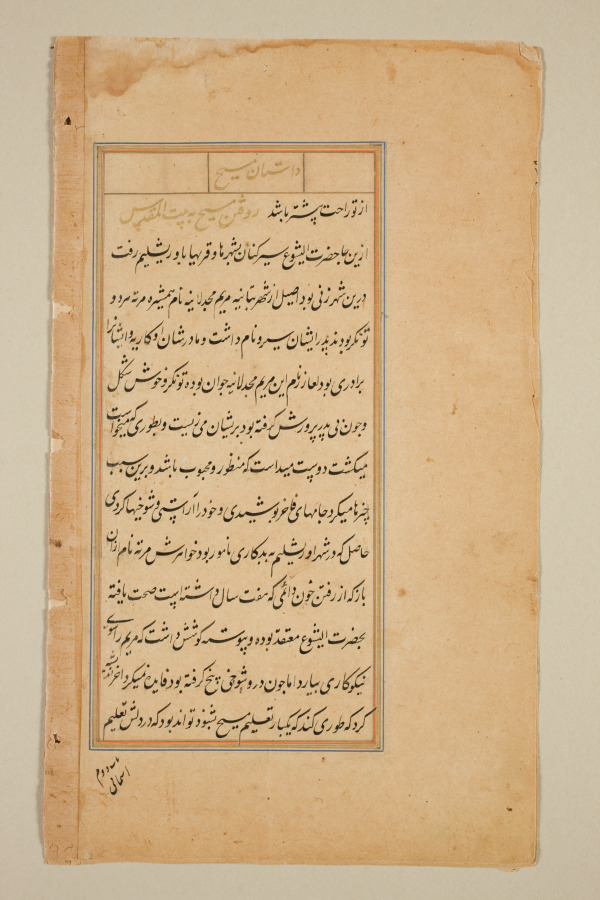 داستان مسیح
از تورات پیشتر باشد رفتن مسیح به بیت المقدس
ازین جا حضرت الیشوع سیر کنان بشهرها و قریها باوریشلیم رفت
درین شهر زنی بود اصیل از شهر بتانیه مریم مجدلانیه نام همشیره مرته مرد و
تونکر بودند پدر ایشان سیرو نام داشت و مادرشان اوکاریه و ایشانرا
برادری بود لعازر نام این مریم مجدلانیه جوان بوده تونکر و خوش شکل
و چون بی پدر پرورش گرفته بود پریشان می زیست و بطوری که میخواست
میکشت دوست میداست که منظور و محبوب باشد و برین سبب
چیزها میکرد جامهای فاخر پوشیدی و خود را آراستی و شوخیها کردی
حاصل که در شهر اوریشلیم به بدکاری نامور بود خواهرش مرته نام ازان
باز که از رفتن خون دائمی که هفت سال داشته است صحت یافته
بحضرت الیشوع معتقد بوده و پیوسته کوشش داشت که مریم را سوی
نیکوکاری بیارد اما چون درو شوخی پنج گرفته بود فایده نمیکرد آخر اندیشه
کرد که طوری کند که یکبار تعلیم مسیح بشنود تواند بود که در دلش تعلیم
آسمانی